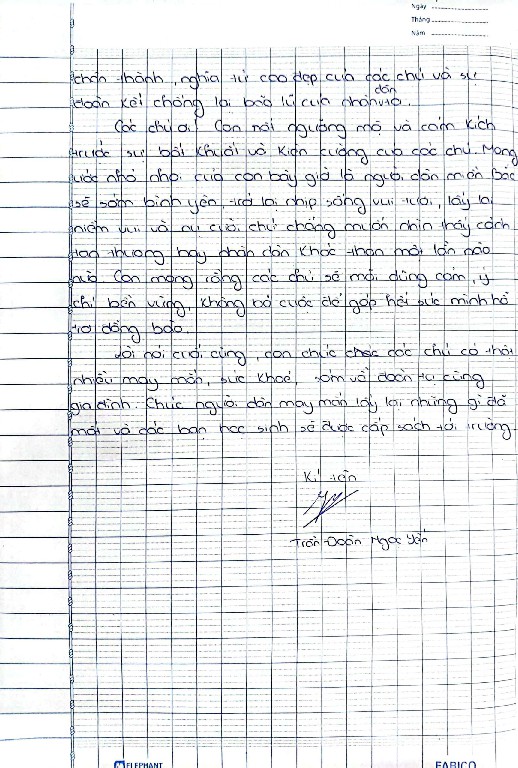 Ngày
Tháng
Năm
chân thành, nghĩa tử cao đẹp của các chú và sự
dân
đoàn kết chống lại bão lũ của nhân ta.
Các chú ơi! Con nói ngưỡng mộ và cảm kích
trước sự bất khuất và kiên cường của các chú. Mong
ước nhỏ nhoi của con bây giờ là người dân miền Bắc
sẽ sớm bình yên, trở lại nhịp sống vui tươi, lấy lại
niềm vui và nụ cười, chứ chẳng muốn nhìn thấy cảnh
tan thương hay nhân dân khóc than một lần nào
nữa. Con mong rằng các chú sẽ mãi dũng cảm, ý
chí bền vững, không bỏ cuộc để góp hết sức mình hỗ
trợ đồng bào.
Lời nói cuối cùng, con chúc các chú có thật
nhiều may mắn, sức khoẻ, sớm về đoàn tụ cùng
gia đình. Chúc người dân may mắn lấy lại những gì đã
mất và các bạn học sinh sẽ được cắp sách tới trường
Kí tên
Trần Đoàn Ngọc Yến
ELEPHANT
FABICO